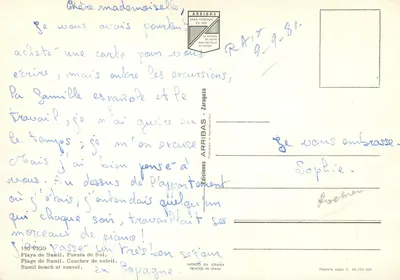 Chère mademoiselle,
Je vous avais pourtant
acheté une carte pour vous
écrire, mais entre les excursions,
la famille espagnole et le
travail, je n'ai guère eu
le temps ; je m'en excuse
Mais j'ai bien pensé à
vous. Au dessus de l'appartement
où j'étais, j'entendais quelqu'un
qui chaque soir, travaillait ses
morceaux de piano !
J'ai passé un très bon séjour
en Espagne.
Je vous embrasse.
Sophie.
9-9-81
ARRIBAS
Ediciones ARRIBAS - Zaragoza
Playa de Samil. Puesta de Sol.
Plage de Samil. Coucher de soleil.
Samil beach at sunset.
IMPRESO EN ESPAÑA
PRINTED IN SPAIN